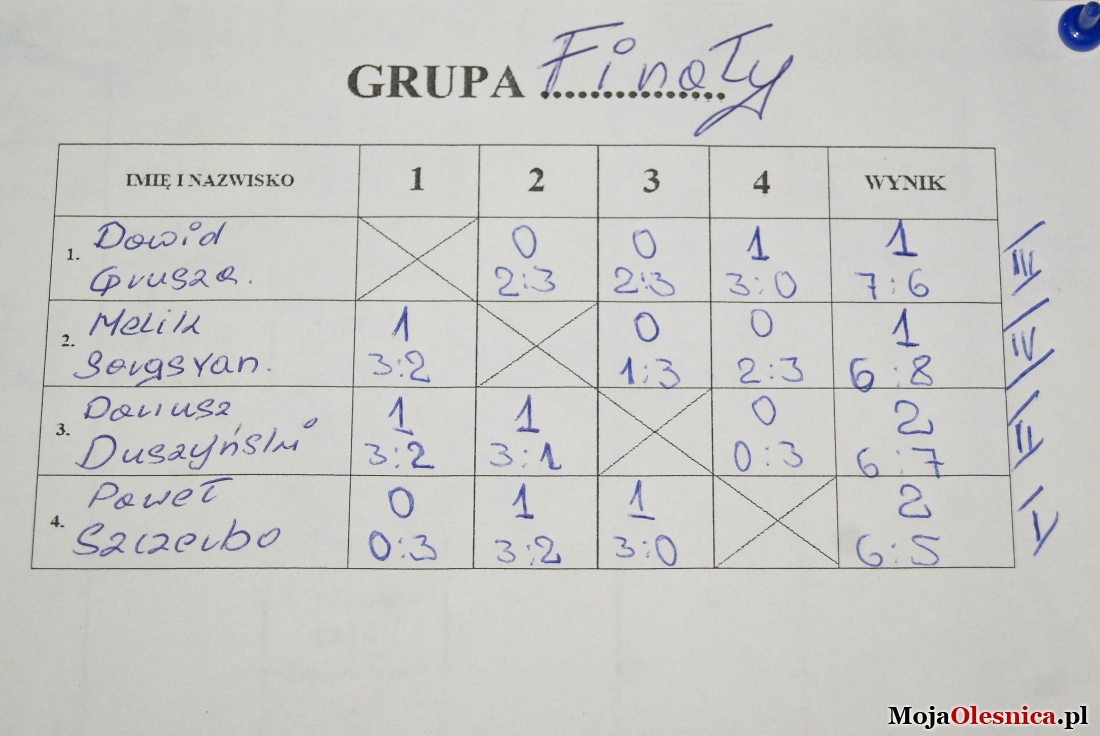 GRUPA Finały
IMIĘ I NAZWISKO 1 2 3 4 WYNIK
1. Dawid Grusza. 0 2:3 0 2:3 1 3:0 1 7:6 III
2. Melik Sargsyan. 1 3:2 0 1:3 0 2:3 1 6:8 IV
3. Dariusz Duszyński 1 3:2 1 3:1 0 0:3 2 6:7 II
4. Paweł Szczerba 0 0:3 1 3:2 1 3:0 2 6:5 I
MojaOlesnica.pl